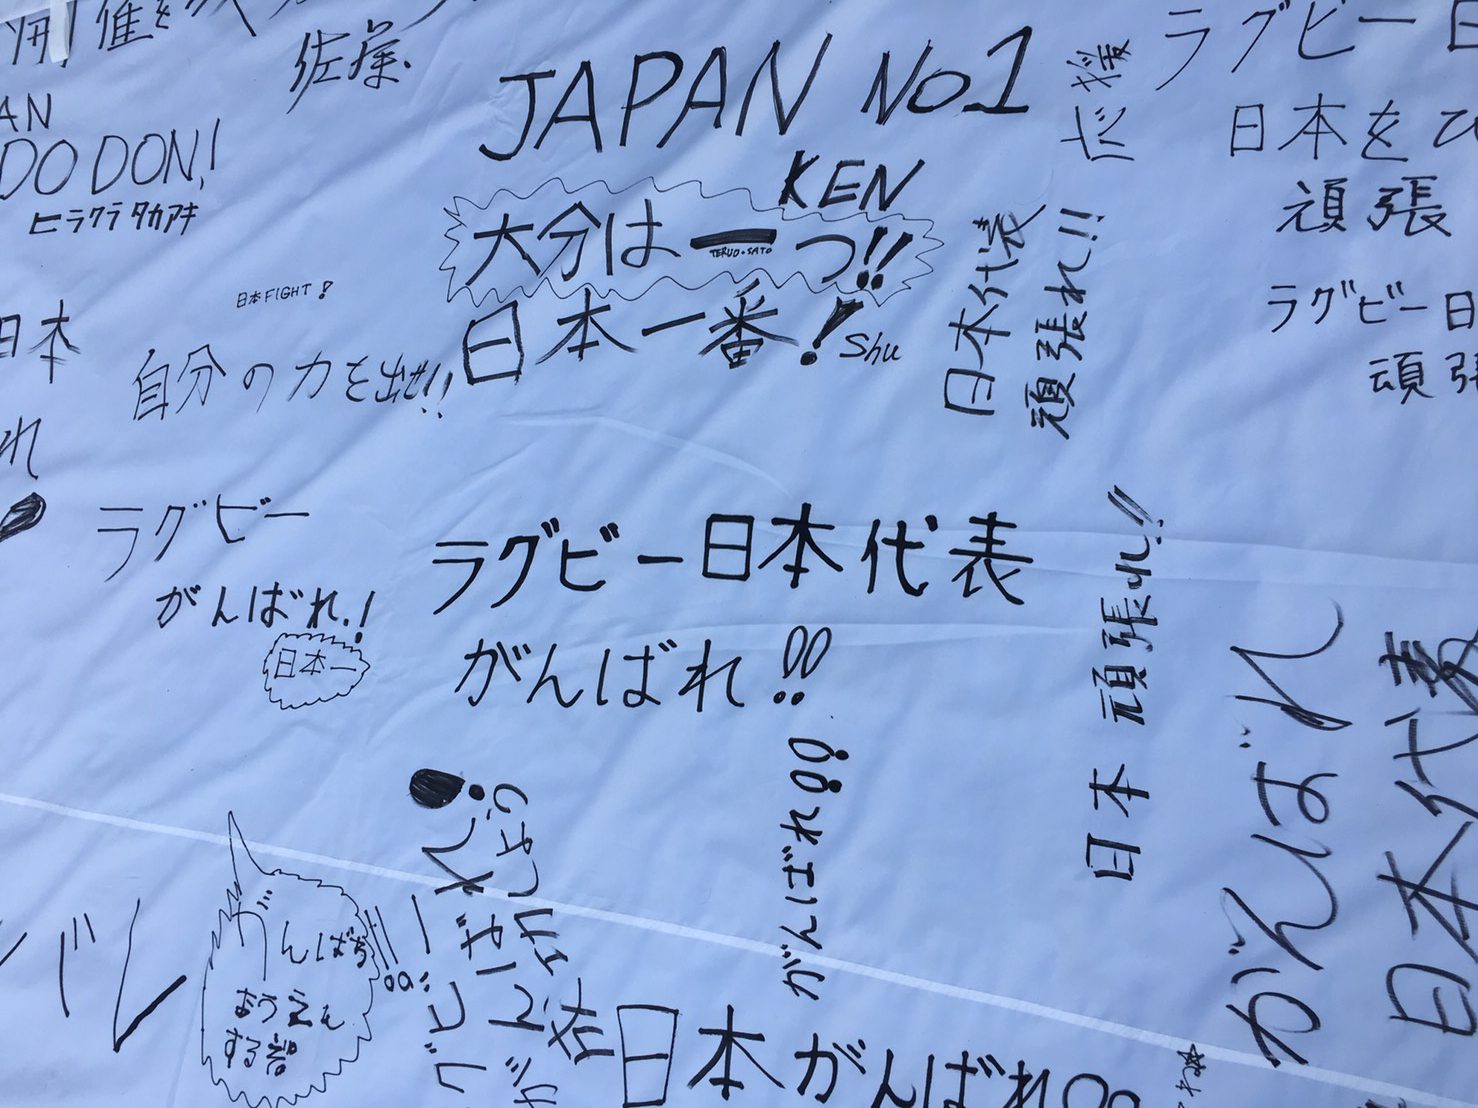 佐藤
JAPAN No1
KEN
AN
DO DON!
ヒラクラ タカアキ
大分は一つ!!
TERUO・SATO
日本一番!
Shu
日本FIGHT!
自分の力を出せ!!
日本
れ
応援
日本代表
頑張れ!!
ラグビー日
日本をひ
頑張
ラグビー日
頑張
ラグビー
がんばれ!
日本一
ラグビー日本代表
がんばれ!!
日本 頑張れ!!
がんばれ!!
がんばれ
日本代表
バレ
おうえん
する
日本がんばれ